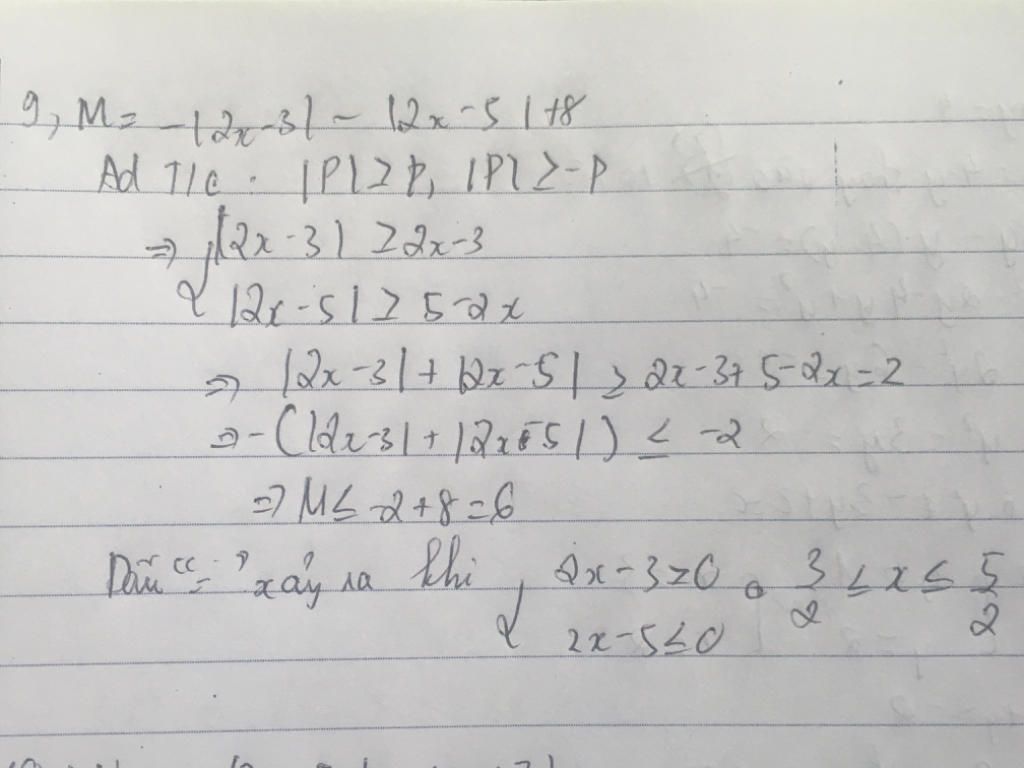 9, M = -|2x-3| - |2x-5|+8
Ad T/c : |P| ≥ P, |P| ≥ -P
⇒ { |2x-3| ≥ 2x-3
|2x-5| ≥ 5-2x
⇒ |2x-3| + |2x-5| ≥ 2x-3+5-2x=2
⇒ -(|2x-3| + |2x-5|) ≤ -2
⇒ M ≤ -2+8=6
Dấu "=" xảy ra khi { 2x-3≥0 3/2 ≤ x ≤ 5/2
2x-5≤0